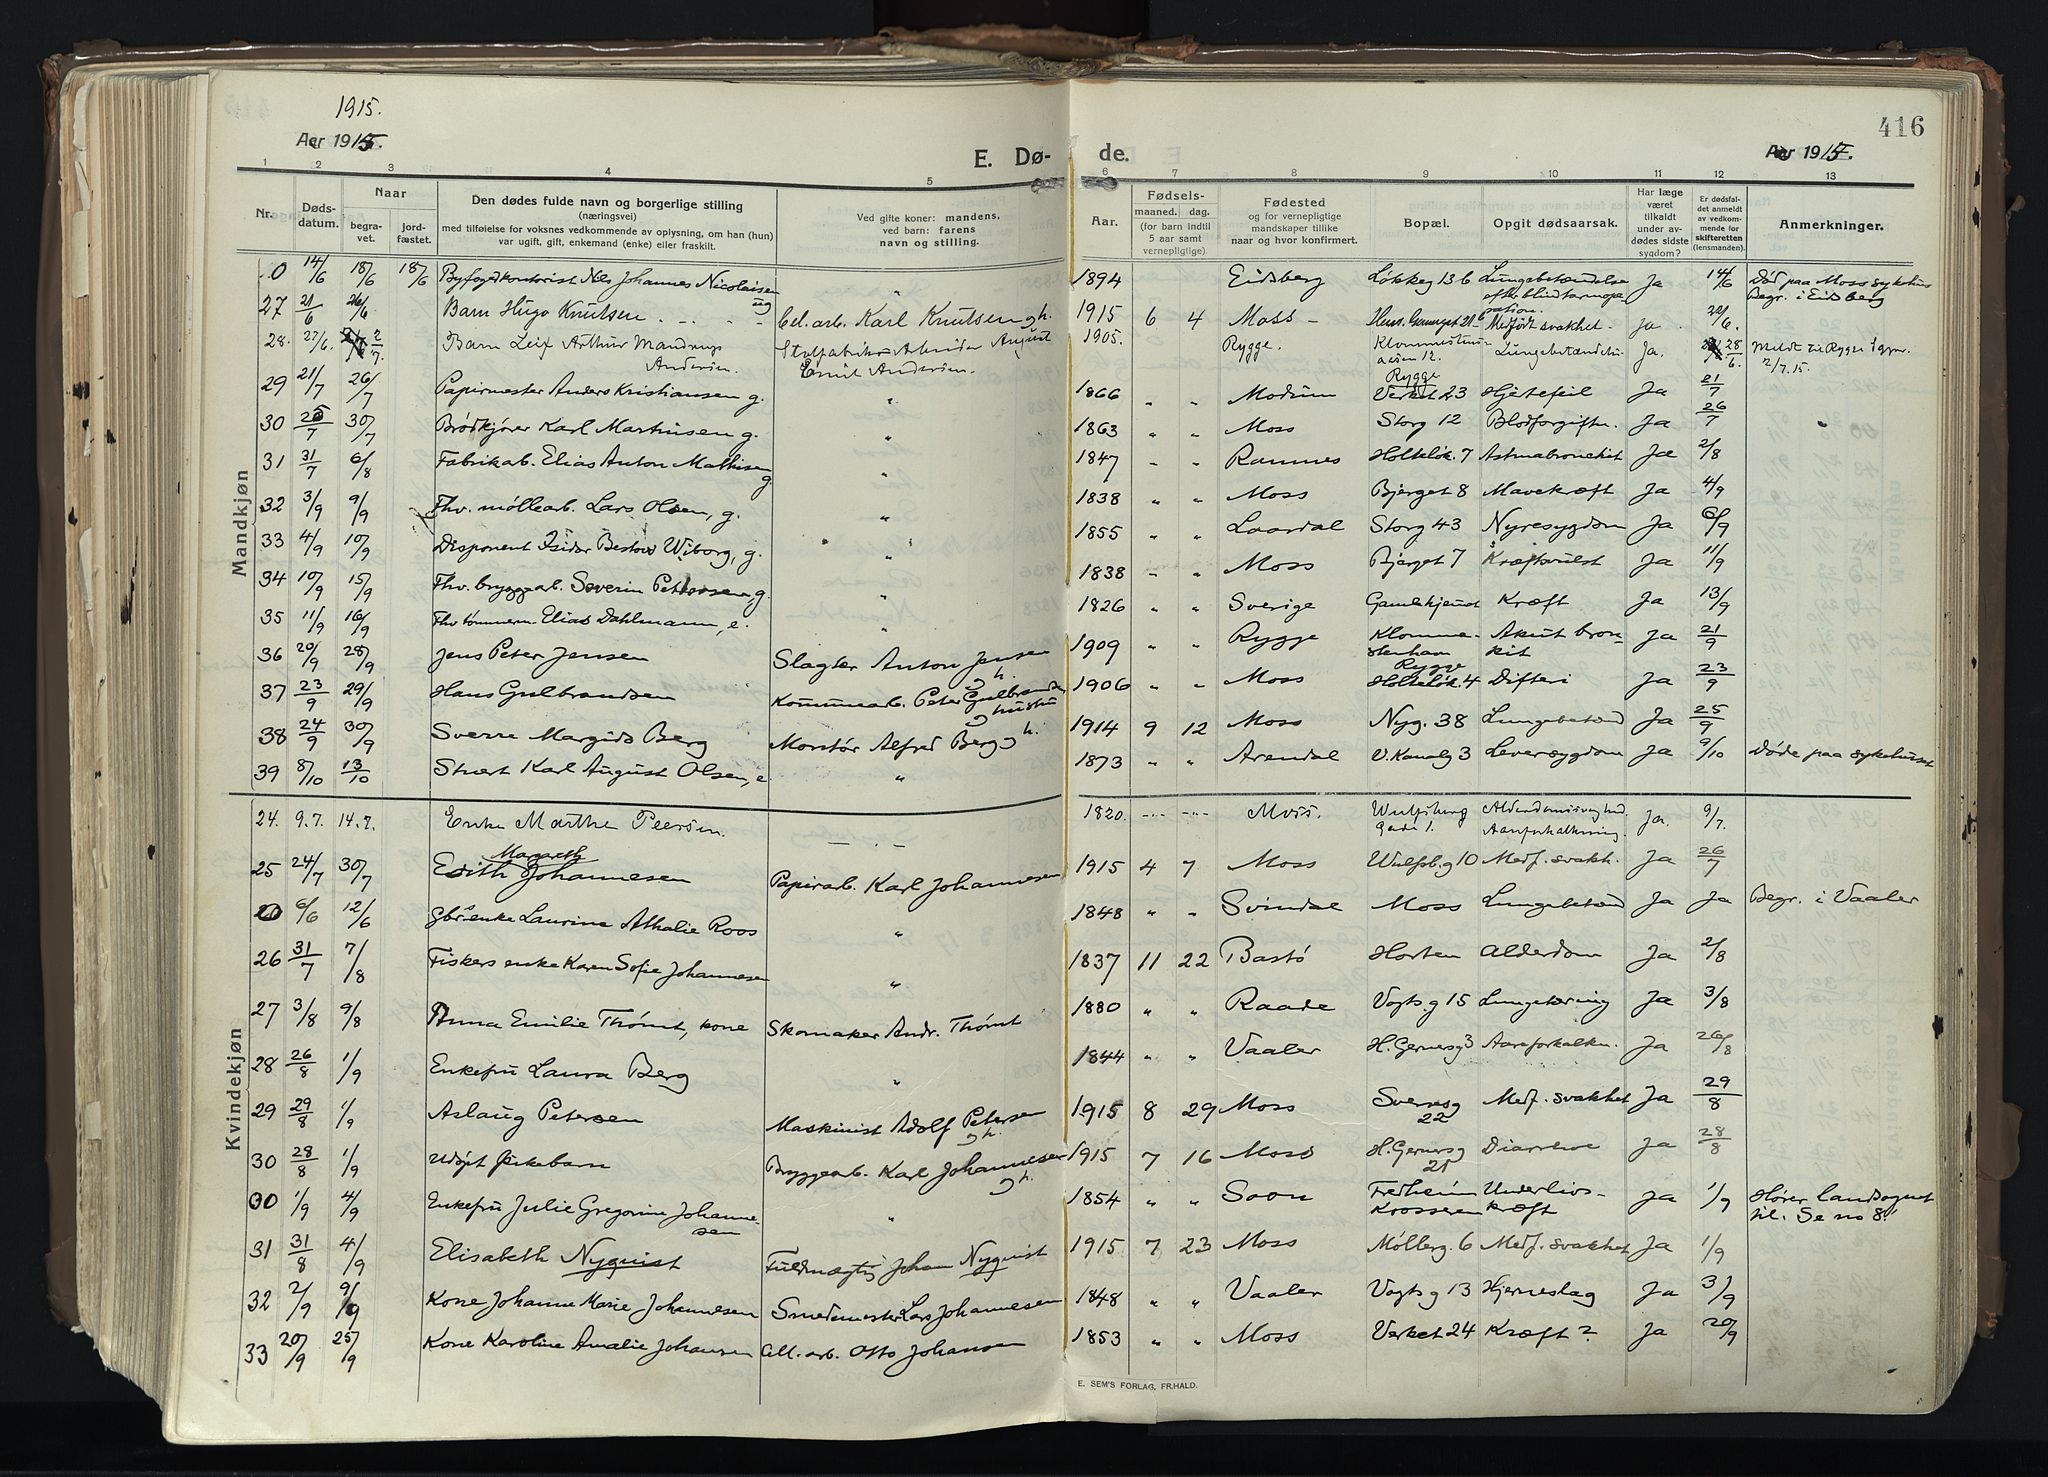 1915.
Aar 1915.
E. Dø-
de.
416
Aar 1915.
1 2 3 4 5 6 7 8 9 10 11 12 13
Nr. Døds-datum. Naar begra-vet. jord-fæstet. Den dødes fulde navn og borgerlige stilling (næringsvei) med tilføielse for voksnes vedkommende av oplysning, om han (hun) var ugift, gift, enkemand (enke) eller fraskilt. Ved gifte koner: mandens, ved barn: farens navn og stilling. Aar. Fødsels- maaned. dag. (for barn indtil 5 aar samt vernepligtige) Fødested og for vernepligtige mandskaper tillike naar og hvor konfirmert. Bopæl. Opgit dødsaarsak. Har læge været tilkaldt under av-dødes sidste sygdom? Er dødsfal-det anmeldt av vedkom-mende for skifteretten (lensmanden). Anmerkninger.
Mandkjøn
0 14/6 18/6 18/6 Byfogdkontorist Nils Johannes Nicolaisen ug " 1894 Eidsberg Løkkeg 136 Lungebetændelse efter blindtarmsoperation. Ja 14/6 Død paa Moss sykehus Begr. i Eidsberg
27 21/6 26/6 Barn Hugo Knutsen Cel.arb. Karl Knutsen gh. 1915 6 4 Moss Medfødt svakhet Ja. 22/6.
28. 27/6. 2/7. Barn Leif Arthur Mandrup Andersen. Arbeider August Emil Andersen. 1905. Rygge. Rygge Lungebetændelse. Ja. 28/6. Meldt til Rygge 2/7.15.
29 21/7 26/7 Papirmester Anders Kristiansen g. " 1866 " " Modum Verket 23 Hjertefeil Ja 21/7
30 25/7 30/7 Brødkjører Karl Martinsen g. " 1863 " " Moss Storg 12 Blodforgiftn. Ja 26/7
31 31/7 6/8 Fabrikarb. Elias Anton Mathisen g " 1847 " " Ramnes Holteløk. 7 Astmabronckit Ja 2/8
32 3/9 9/9 Fhv. møllearb. Lars Olsen, g. " 1838 " " Moss Bjerget 8 Mavekræft Ja 4/9
33 4/9 10/9 Disponent Isidor Wiborg, g. " 1855 " " Laardal Storg 43 Nyresygdom Ja 6/9
34 10/9 15/9 Fhv. bryggearb. Severin Pettersen, g. " 1838 " " Moss Bjerget 7 Kræftsvulst Ja 11/9
35 11/9 16/9 Fhv tømmerm. Elias Dahlmann, e. " 1826 " " Sverige Kræft Ja 13/9
36 20/9 28/9 Jens Peter Jensen Slagter Anton Jensen gh. 1909 " " Rygge Klommestenham Rygge Akut bronkit Ja 21/9
37 23/9 29/9 Hans Gulbrandsen Kommunearb. Peter Gulbrandsen g hustru 1906 " " Moss Holteløk. 4 Difteri Ja 23/9
38 24/9 30/9 Sverre Margido Berg Alfred Berg gh. 1914 9 12 Moss Nyg. 38 Lungebetænd Ja 25/9
39 8/10 13/10 Karl August Olsen, e " 1873 " " Arendal V. Kanalg 3 Leversygdom Ja 9/10 Døde paa sykehuset
Kvindekjøn
24. 9.7. 14.7. Enke Marthe Peersen. 1820. Moss. Wulfsberg Gade 1. Aareforkalkning. Ja. 9/7.
25 24/7 30/7 Edith Margreth Johannesen Papirarb. Karl Johannesen 1915 4 7 Moss Wulfsb.g 10 Medf. svakh. Ja 26/7
0 6/6 12/6 Gbr.enke Laurine Athalie Roos " 1848 " " Svindal Moss Lungebetænd Ja Ja Begr. i Vaaler
26 31/7 7/8 Fiskers enke Karen Sofie Johannesen " 1837 11 22 Bastø Horten Alderdom Ja 2/8
27 3/8 9/8 Anna Emilie Thømt, kone Skomaker Andr. Thømt 1880 " " Raade Vogts g 15 Lungetæring Ja 3/8
28 26/8 1/9 Enkefru Laura Berg " 1844 " " Vaaler H. Gernersg 3 Aareforkalkn. Ja 26/8
29 29/8 1/9 Aslaug Petersen Maskinist Adolf Petersen gh. 1915 8 29 Moss Sverresg 22 Medf. svakhet Ja 29/8
30 28/8 1/9 Udøpt pikebarn Bryggearb. Karl Johannesen gh. 1915 7 16 Moss H. Gernersg 21 Diarrhoe Ja 28/8
30 1/9 4/9 Enkefru Julie Gregorine Johannesen " 1854 " " Soon Fredheim Krosseren Underlivskræft Ja 1/9 Hører landsognet til. Se no 8!
31 31/8 4/9 Elisabeth Nyquist Fuldmægtig Johan Nyquist 1915 7 23 Moss Møllerg. 6 Medf. svakhet Ja 1/9
32 2/9 9/9 Kone Johanne Marie Johannesen Smedemester Lars Johannesen 1848 " " Vaaler Vogts g 13 Hjerneslag Ja 3/9
33 20/9 25/9 Kone Karoline Amalie Johansen Cell. arb. Otto Johansen 1853 " " Moss Verket 24 Kræft? Ja 20/9
E. SEM'S FORLAG, FR.HALD.